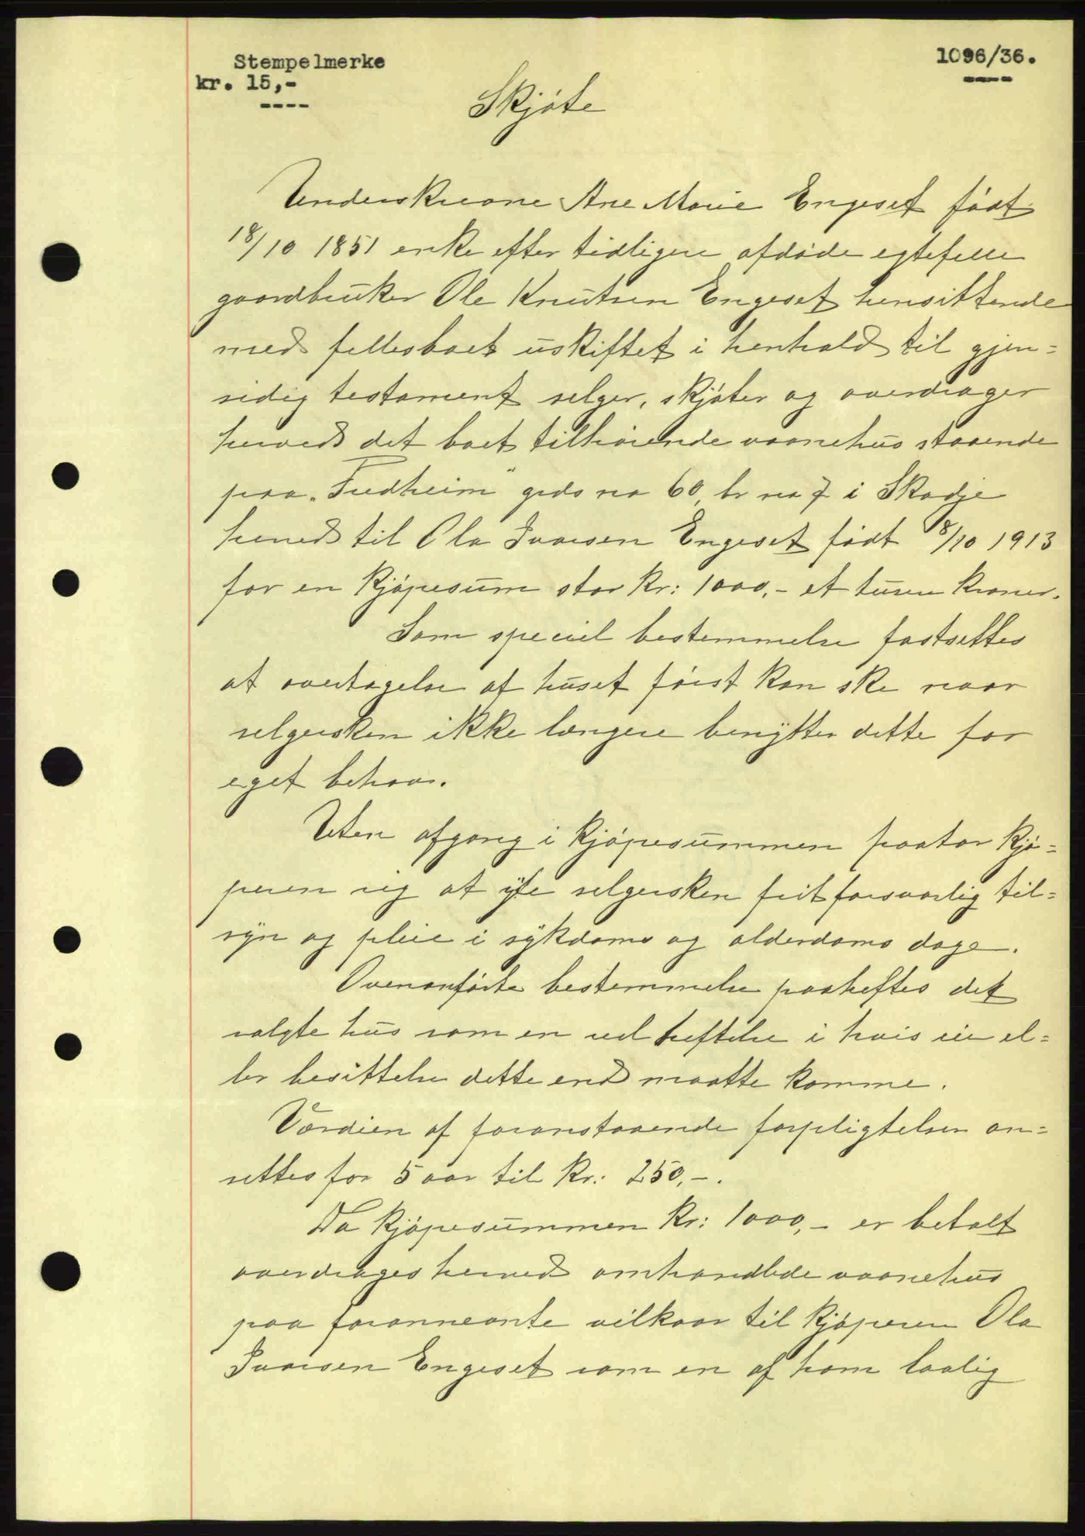 Stempelmerke
kr. 15,-
----
1096/36.
----
Skjøte
Underskrevne Ane Marie Engeset født
18/10 1851 enke efter tidligere afdøde egtefelle
gaardbruker Ole Knutsen Engeset hensittende
med fellesboet uskiftet i henhold til gjen=
sidig testament selger, skjøter og overdrager
herved det boet tilhørende vaanehus staaende
paa "Fredheim" grds no 60, br no 7 i Skodje
herred til Ola Ivarsen Engeset født 18/10 1913
for en kjøpesum stor kr: 1000,- et tusen kroner.
Som speciel bestemmelse fastsettes
at overtagelse af huset først kan ske naar
selgersken ikke længere benytter dette for
eget behov.
Uten afgang i kjøpesummen paatar kjø=
peren sig at yte selgersken frit forsvarlig til=
syn og pleie i sykdoms og alderdoms dage.
Ovenanførte bestemmelse paaheftes det
solgte hus som en ved heftelse i hvis eie el=
ler besittelse dette end maatte komme.
Værdien af foranstaaende forpligtelser an=
settes for 5 aar til kr: 250,-.
Da kjøpesummen kr: 1000,- er betalt
overdrages herved omhandlede vaanehus
paa forannevnte vilkaar til kjøperen Ola
Ivarsen Engeset som en af ham lovlig